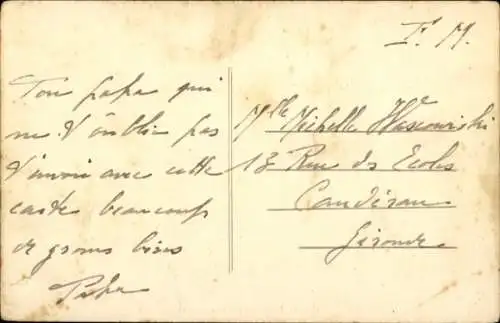 F. M.
Ton papa qui
ne t'oublie pas
t'envoi avec cette
carte beaucoup
de grosses bises
Papa
Mlle Michelle
18 Rue des Ecoles
Caudéran
Gironde